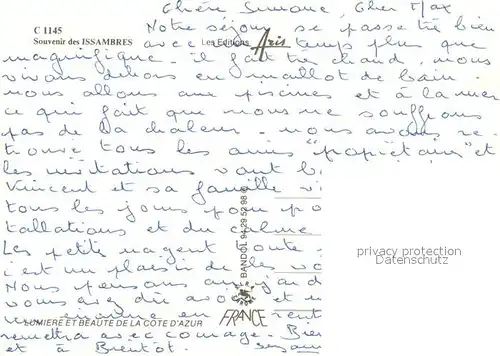 Chère Simone, Cher Max
C 1145
Notre séjour se passe très bien
Souvenir des ISSAMBRES
avec un temps plus que
Les Editions Aris
magnifique - il fait très chaud, nous
vivons dehors en maillot de bain.
nous allons aux piscines et à la mer
ce qui fait que nous ne souffrons
pas de la chaleur - nous avons re
trouvé tous les amis "propriétaires" et
les invitations vont b
Vincent et sa famille vi
tous les jours pour po
tallations et du calme
Les petits nagent toute
c'est un plaisir de les vo
Nous pensons au jard
vous avez dû avoir et
en rent
remettra avec courage. Bien
et à Bientôt.
BANDOL 94 29 52 98
LUMIERE ET BEAUTE DE LA COTE D'AZUR
FRANCE
privacy protection
Datenschutz